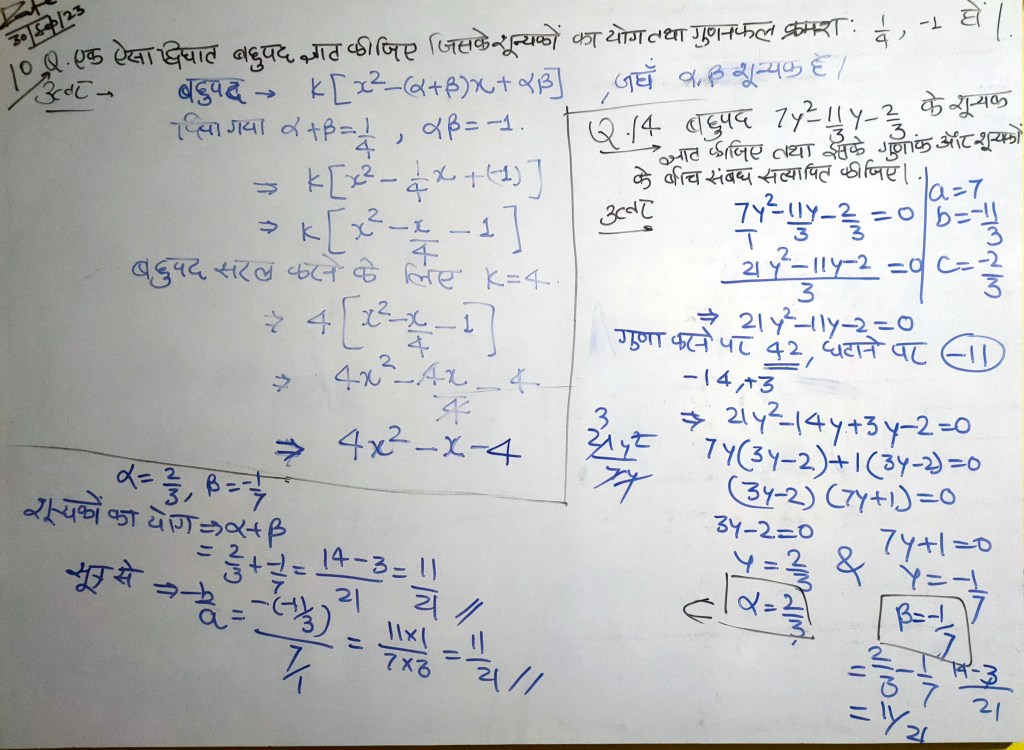 Date
30/Sep/23
10 Q. एक ऐसा द्विघात बहुपद ज्ञात कीजिए जिसके शून्यकों का योग तथा गुणनफल क्रमश: 1/4, -1 हों।
उत्तर → बहुपद → K[x²-(α+β)x+αβ] , जहाँ α, β शून्यक हैं।
दिया गया α+β=1/4, αβ=-1.
⇒ K[x² - 1/4 x + (-1)]
⇒ K[x² - x/4 - 1]
बहुपद सरल करने के लिए K=4.
⇒ 4[x² - x/4 - 1]
⇒ 4x² - 4x/4 - 4
⇒ 4x² - x - 4
Q.14 बहुपद 7y² - 11/3 y - 2/3 के शून्यक
ज्ञात कीजिए तथा इसके गुणांक और शून्यकों
के बीच संबंध सत्यापित कीजिए।
उत्तर
7y²/1 - 11y/3 - 2/3 = 0
a=7
b=-11/3
c=-2/3
21y²-11y-2/3 = 0
⇒ 21y²-11y-2=0
गुणा करने पर 42, घटाने पर -11
-14,+3
⇒ 21y²-14y+3y-2=0
3
21y²/7y
7y(3y-2)+1(3y-2)=0
(3y-2) (7y+1)=0
3y-2=0 & 7y+1=0
y=2/3 y=-1/7
α=2/3 β=-1/7
=2/3-1/7 14-3/21
=11/21
α=2/3, β=-1/7
शून्यकों का योग ⇒ α+β
= 2/3 + -1/7 = 14-3/21 = 11/21 //
सूत्र से ⇒ -b/a = -(-11/3)/7/1 = 11×1/7×3 = 11/21 //